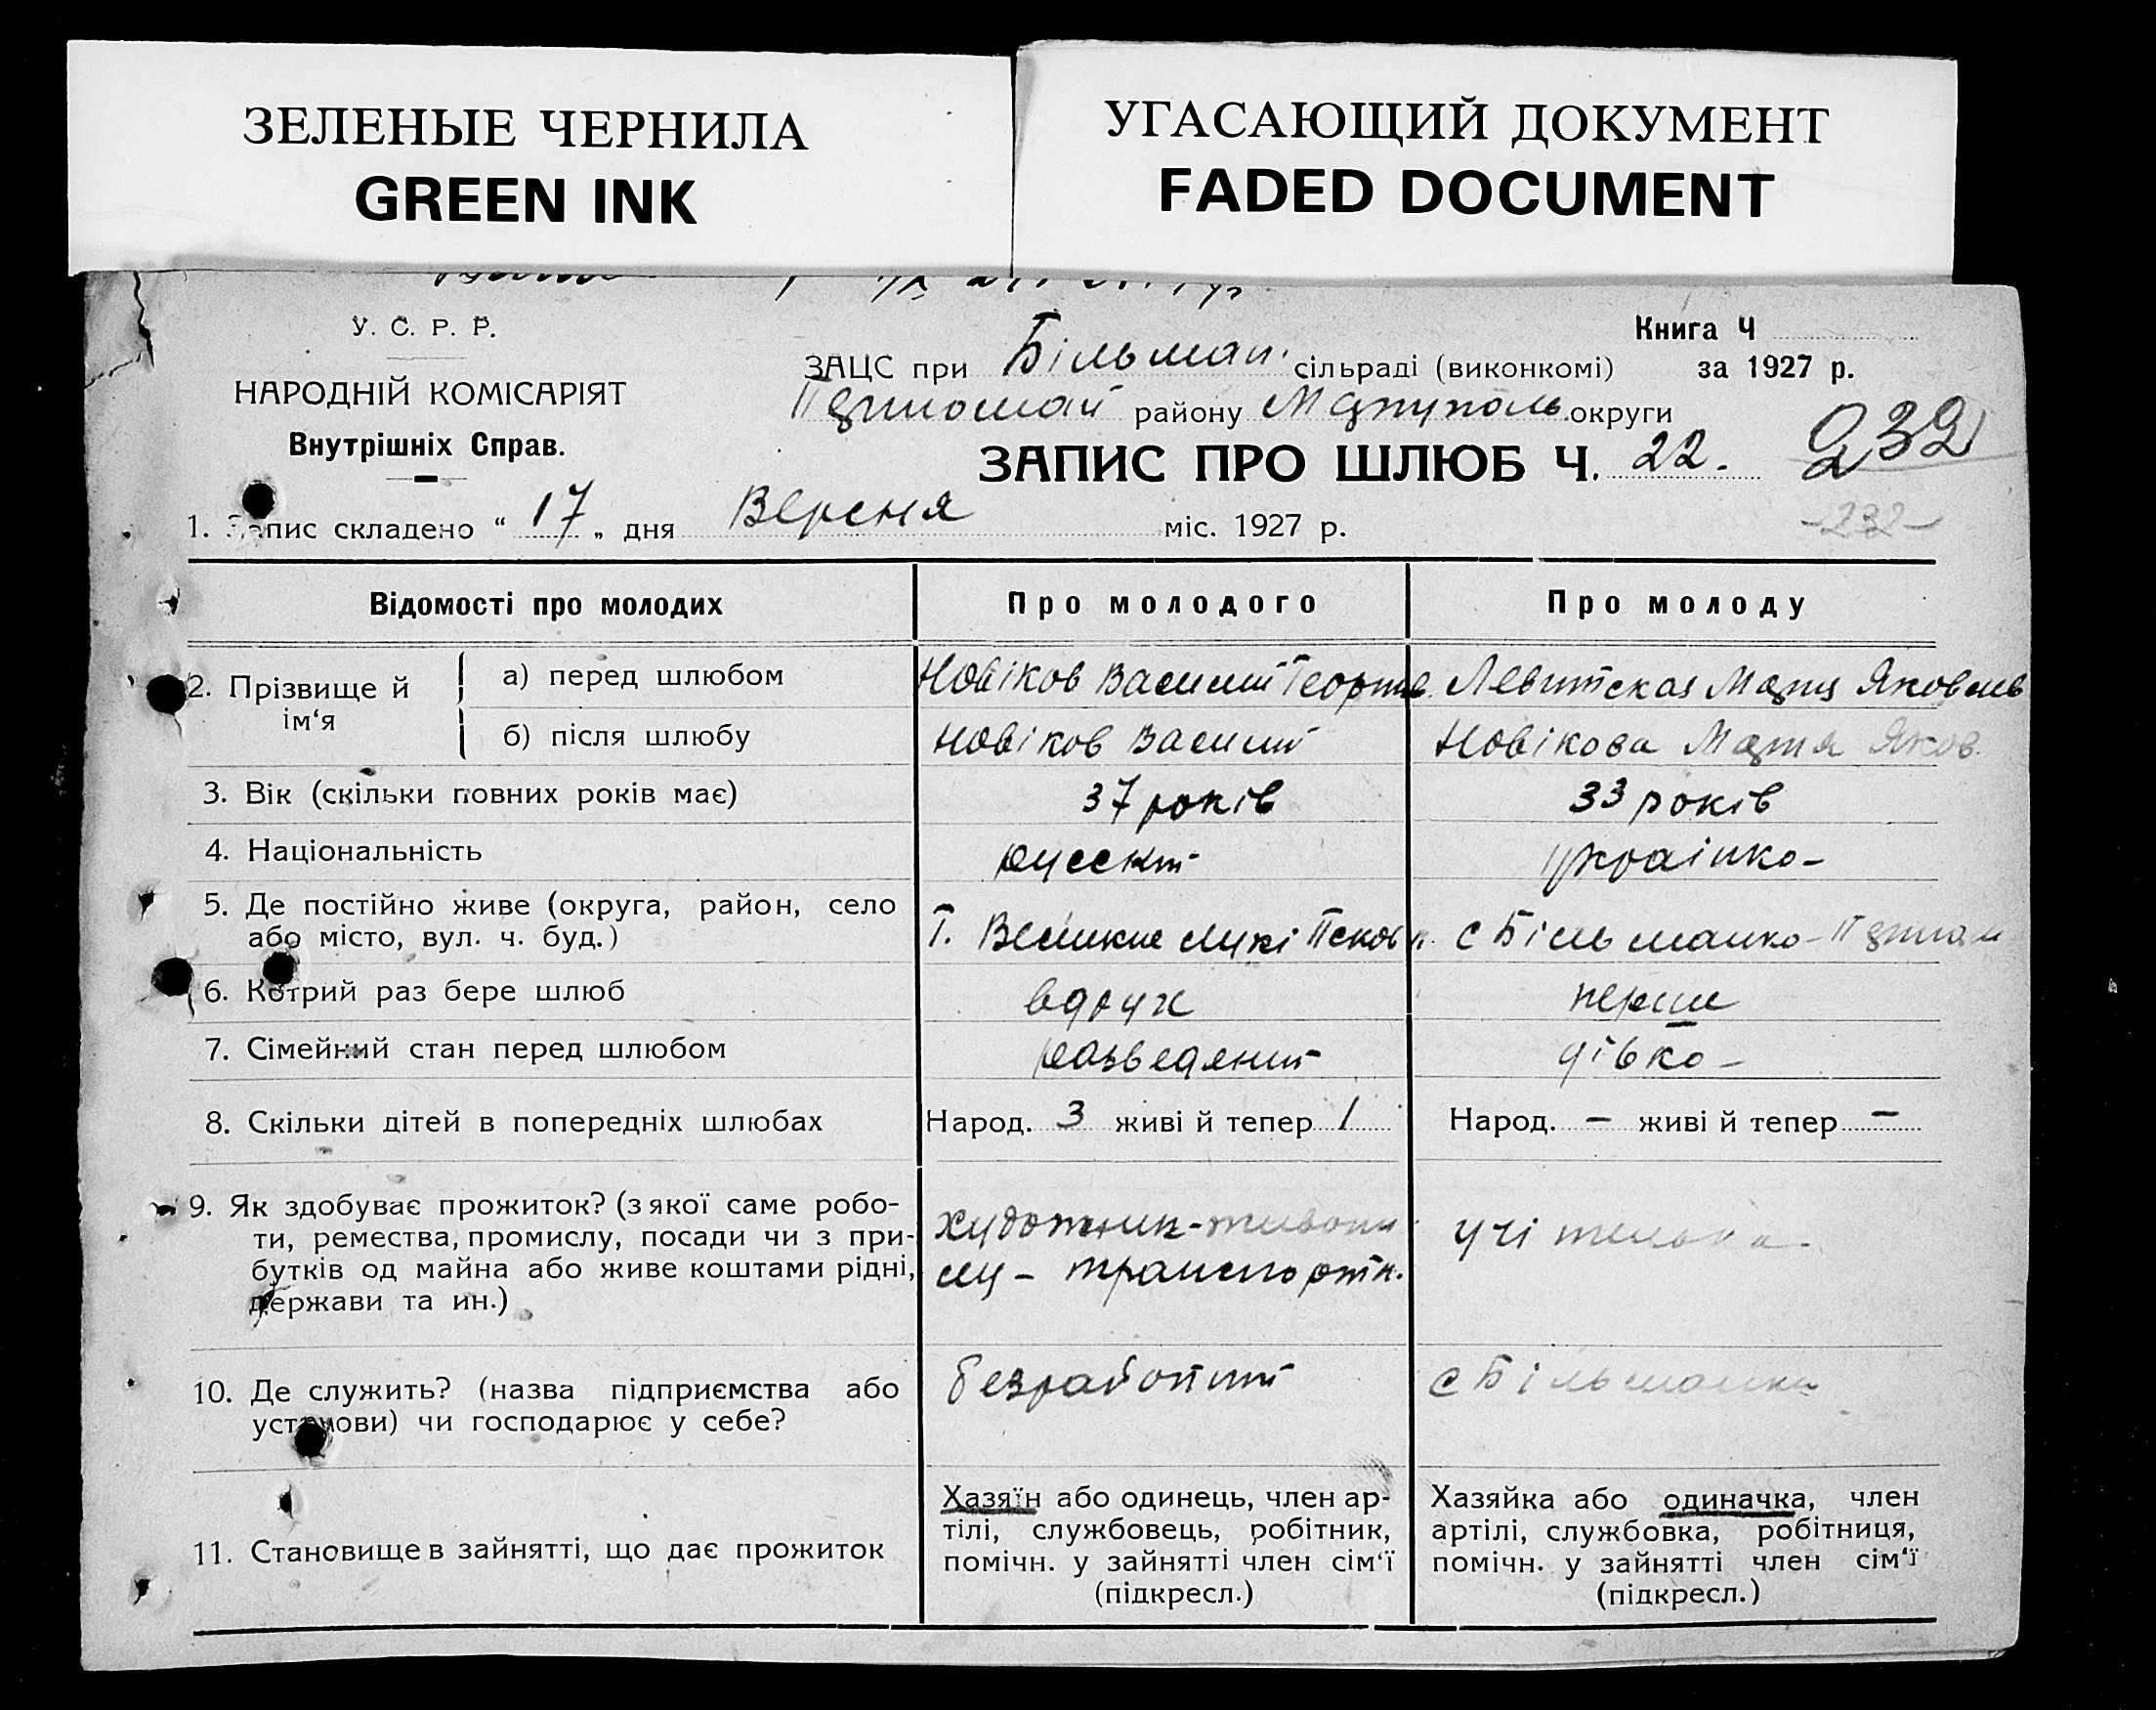 ЗЕЛЕНЫЕ ЧЕРНИЛА
GREEN INK
УГАСАЮЩИЙ ДОКУМЕНТ
FADED DOCUMENT
У. С. Р. Р.
НАРОДНІЙ КОМІСАРІЯТ
Внутрішніх Справ.
Книга Ч
ЗАЦС при Більман. сільраді (виконкомі) за 1927 р.
району Маріуполь. округи
ЗАПИС ПРО ШЛЮБ Ч. 22.
232
-232-
1. Запис складено “ 17 „ дня Версня міс. 1927 р.
Відомості про молодих
Про молодого
Про молоду
2. Прізвище й ім‘я
а) перед шлюбом
Новіков Василий Георгив.
Левитская Мария Яковлев
б) після шлюбу
Новіков Василий
Новікова Мария Яков.
3. Вік (скільки повних років має)
37 років
33 років
4. Національність
русский
українко-
5. Де постійно живе (округа, район, село
або місто, вул. ч. буд.)
Г. Великие Лукі Псков г.
с Більманко-
6. Котрий раз бере шлюб
вдруг
перше
7. Сімейний стан перед шлюбом
разведяний
дівко-
8. Скільки дітей в попередніх шлюбах
Народ. 3 живі й тепер 1
Народ. - живі й тепер -
9. Як здобуває прожиток? (з якої саме робо-
ти, ремества, промислу, посади чи з при-
бутків од майна або живе коштами рідні,
держави та ин.)
художник-живопи
сец - транспортн.
учітелька-
10. Де служить? (назва підприємства або
установи) чи господарює у себе?
безработний
с Більманки
11. Становище в зайнятті, що дає прожиток
Хазяїн або одинець, член ар-
тілі, службовець, робітник,
помічн. у зайнятті член сім‘ї
(підкресл.)
Хазяйка або одиначка, член
артілі, службовка, робітниця,
помічн. у зайнятті член сім‘ї
(підкресл.)